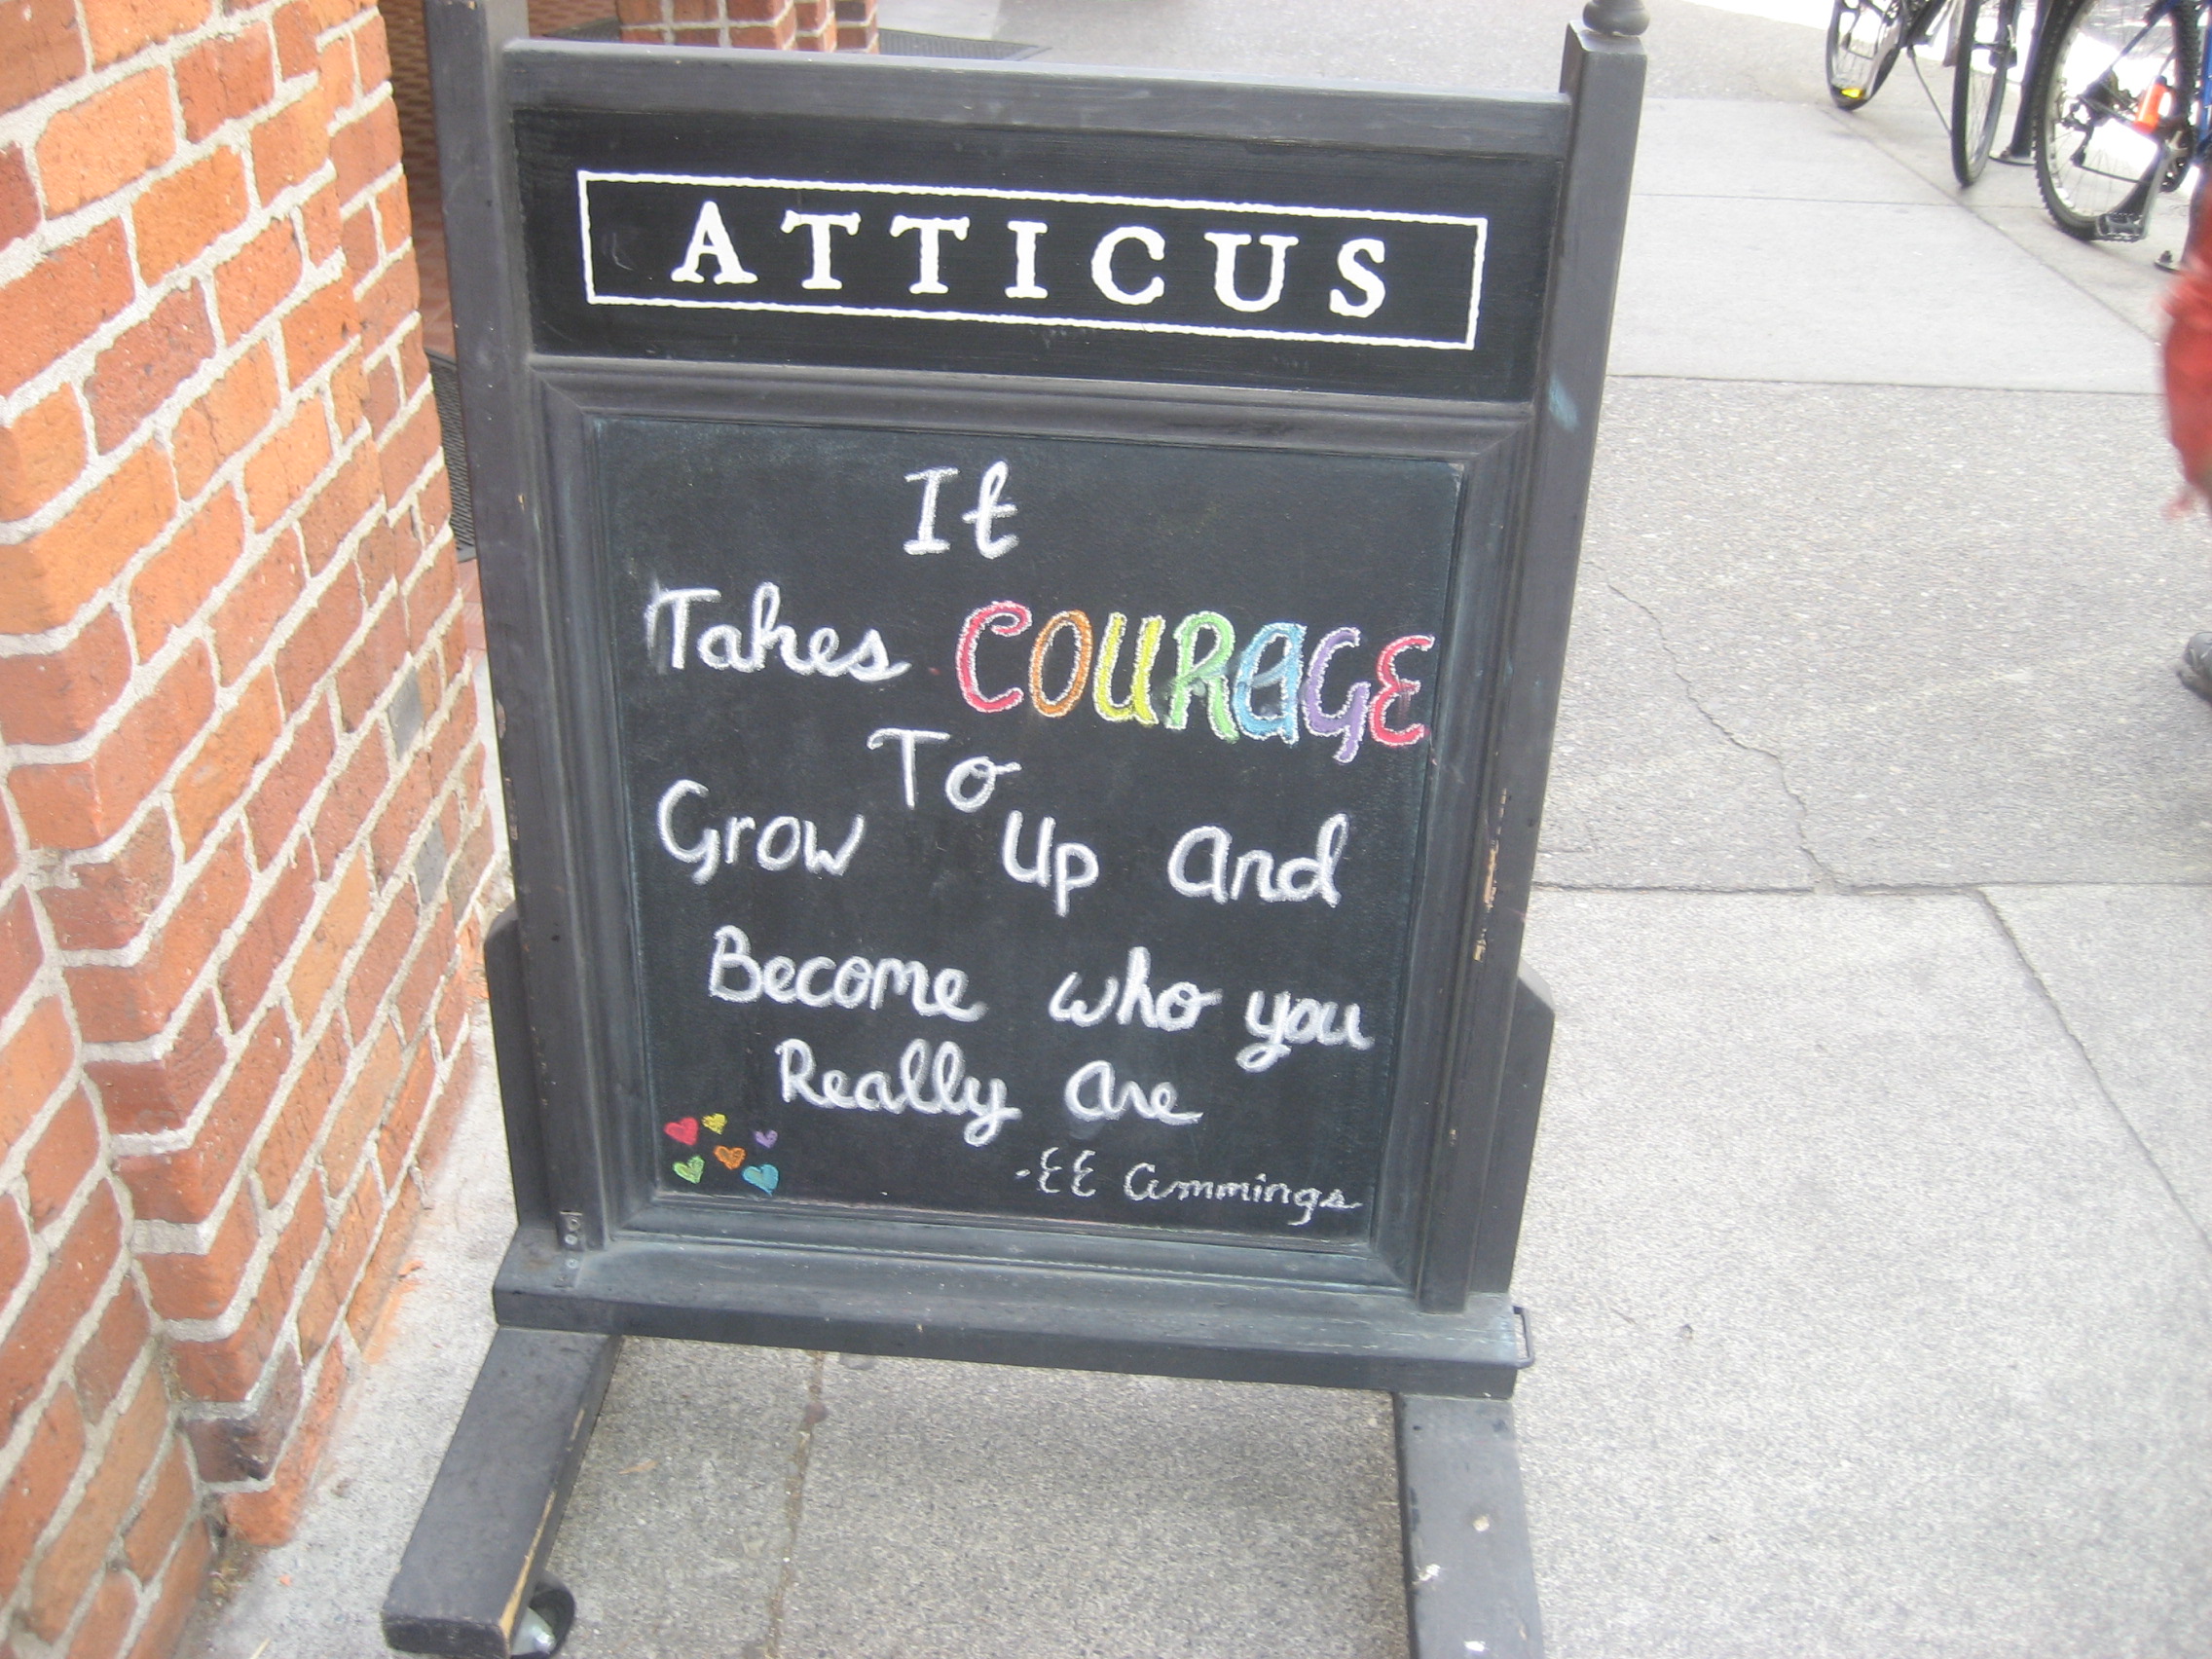 ATTICUS
It
Takes COURAGE
To
Grow Up And
Become who you
Really Are
-EE Cummings